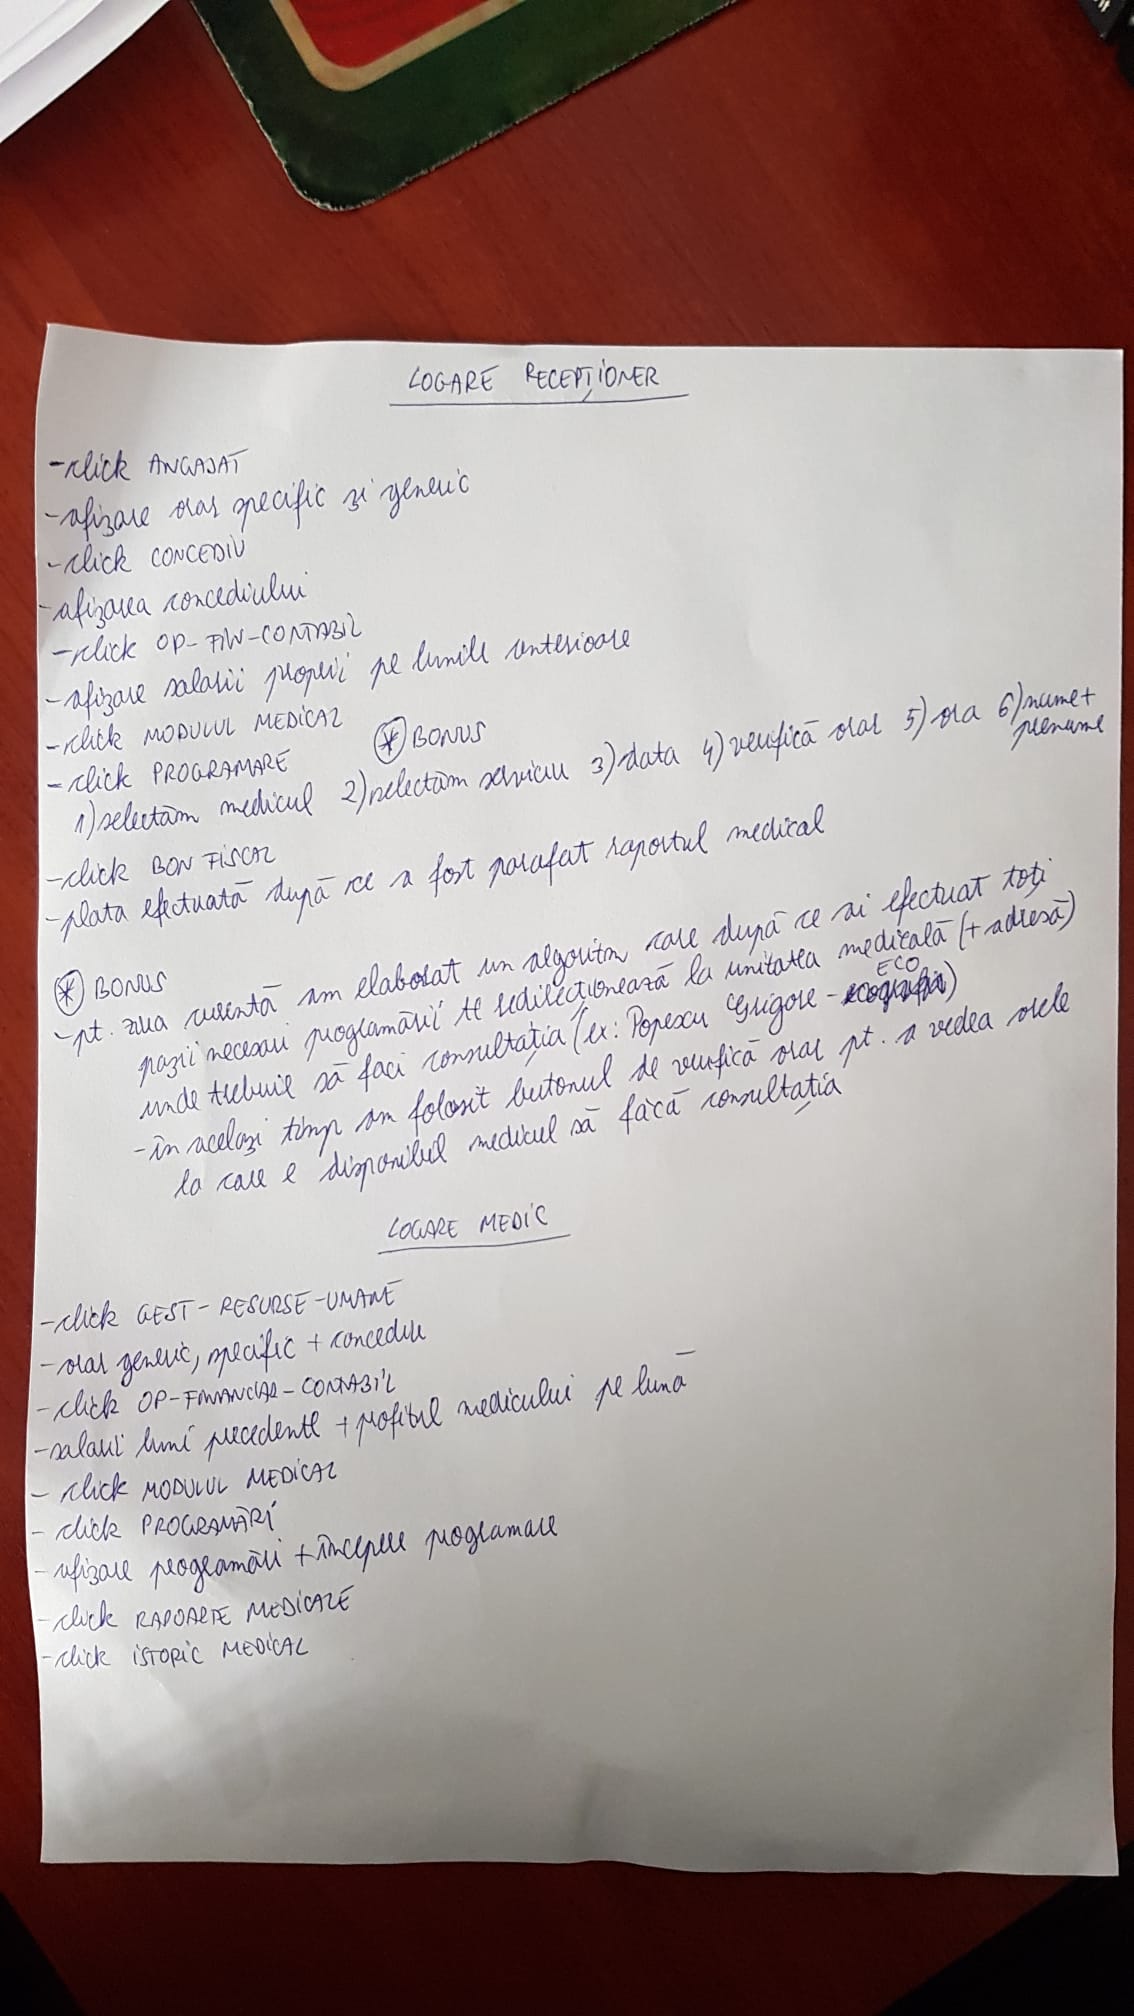 LOGARE RECEPȚIONER
-click ANGAJAT
-afizare orar specific și generic
-click CONCEDIU
-afizarea concediului
-click OP-FIN-CONTABIL
-afizare salarii proprii pe lunile anterioare
-click MODULUL MEDICAL
-click PROGRAMARE * BONUS
1) selectăm medicul 2) selectăm serviciu 3) data 4) verifică orar 5) ora 6) nume+
prenume
-click BON FISCAL
-plata efectuată după ce a fost parafat raportul medical
* BONUS
-pt. ziua curentă am elaborat un algoritm care după ce ai efectuat toți
pașii necesari programării te redirecționează la unitatea medicală (+adresă)
unde trebuie să faci consultația (ex: Popescu Grigore - ECO)
-în același timp am folosit butonul de verifică orar pt. a vedea orele
la care e disponibil medicul să facă consultația
LOGARE MEDIC
-click GEST-RESURSE-UMANE
-orar generic, specific + concedii
-click OP-FINANCIAR-CONTABIL
-salarii luni precedente + profitul medicului pe lună
- click MODULUL MEDICAL
- click PROGRAMĂRI
- afizare programări + începere programare
-click RAPOARTE MEDICALE
-click ISTORIC MEDICAL